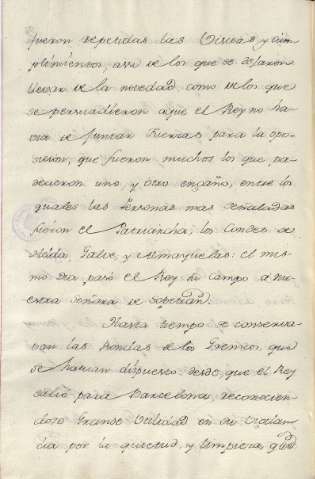 fueron repetidas las Visitas y cum-
plimientos, assi de los que se dejaron
llevar de la novedad, como de los que
se persuadieron a que el Rey no ha-
via de juntar fuerzas para la opo-
sicion, que fueron muchos los que pa-
decieron uno, y otro engaño, entre los
quales las Personas mas señaladas
fueron el Patriarcha; los Condes de
Galve, y el mis-
mo dia pasó el Rey su campo a nu-
estra Señora de Sopetran.
Hasta tiempo se conserva-
ron las Rondas de los Gremios, que
se havian dispuesto desde que el Rey
salió para Barcelona, reconocien-
dose grande utilidad en su vigilan-
cia por la quietud, y limpieza que